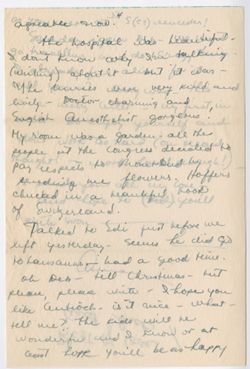 appreciate now.
The hospital was beautiful -
I don't know why I'm talking -
(writing) about it all but it was -
The nurses were very kind and
lively - Doctor charming and
English Anesthetist, gorgeous
My room was a garden - all the
people at the Congress decided to
pay respects to
sending me flowers. Hoffers
chucked in a beautiful book
of Switzerland.
Talked to Edi just before we
left yesterday - seems he did go
to Lausanne - had a good time.
Oh Deb - till Christmas - but
please, please write - I hope you
like Antioch - is it nice - what -
tell me? The kids will be
wonderful and I know or at
least hope you'll be as happy